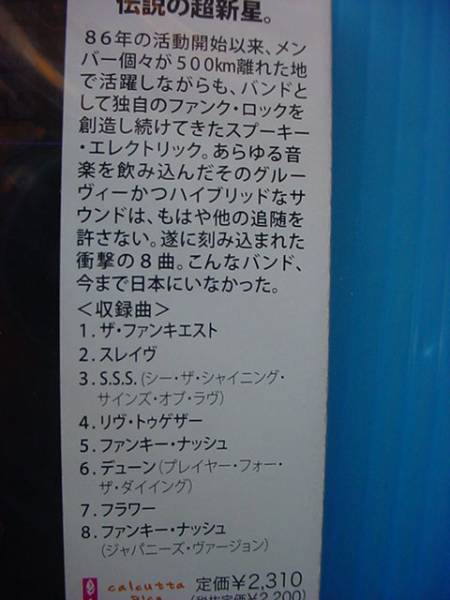 伝説の超新星。
86年の活動開始以来、メン
バー個々が500km離れた地
で活躍しながらも、バンドと
して独自のファンク・ロックを
創造し続けてきたスプーキー
・エレクトリック。あらゆる音
楽を飲み込んだそのグルー
ヴィーかつハイブリッドなサ
ウンドは、もはや他の追随を
許さない。遂に刻み込まれた
衝撃の8曲。こんなバンド、
今まで日本にいなかった。
<収録曲>
1.ザ・ファンキエスト
2.スレイヴ
3.S.S.S.(シー・ザ・シャイニング・
サインズ・オブ・ラヴ)
4.リヴ・トゥゲザー
5.ファンキー・ナッシュ
6.デューン(プレイヤー・フォー・
ザ・ダイイング)
7.フラワー
8.ファンキー・ナッシュ
(ジャパニーズ・ヴァージョン)
calcutta 定価¥2,310
(税抜定価¥2,200)